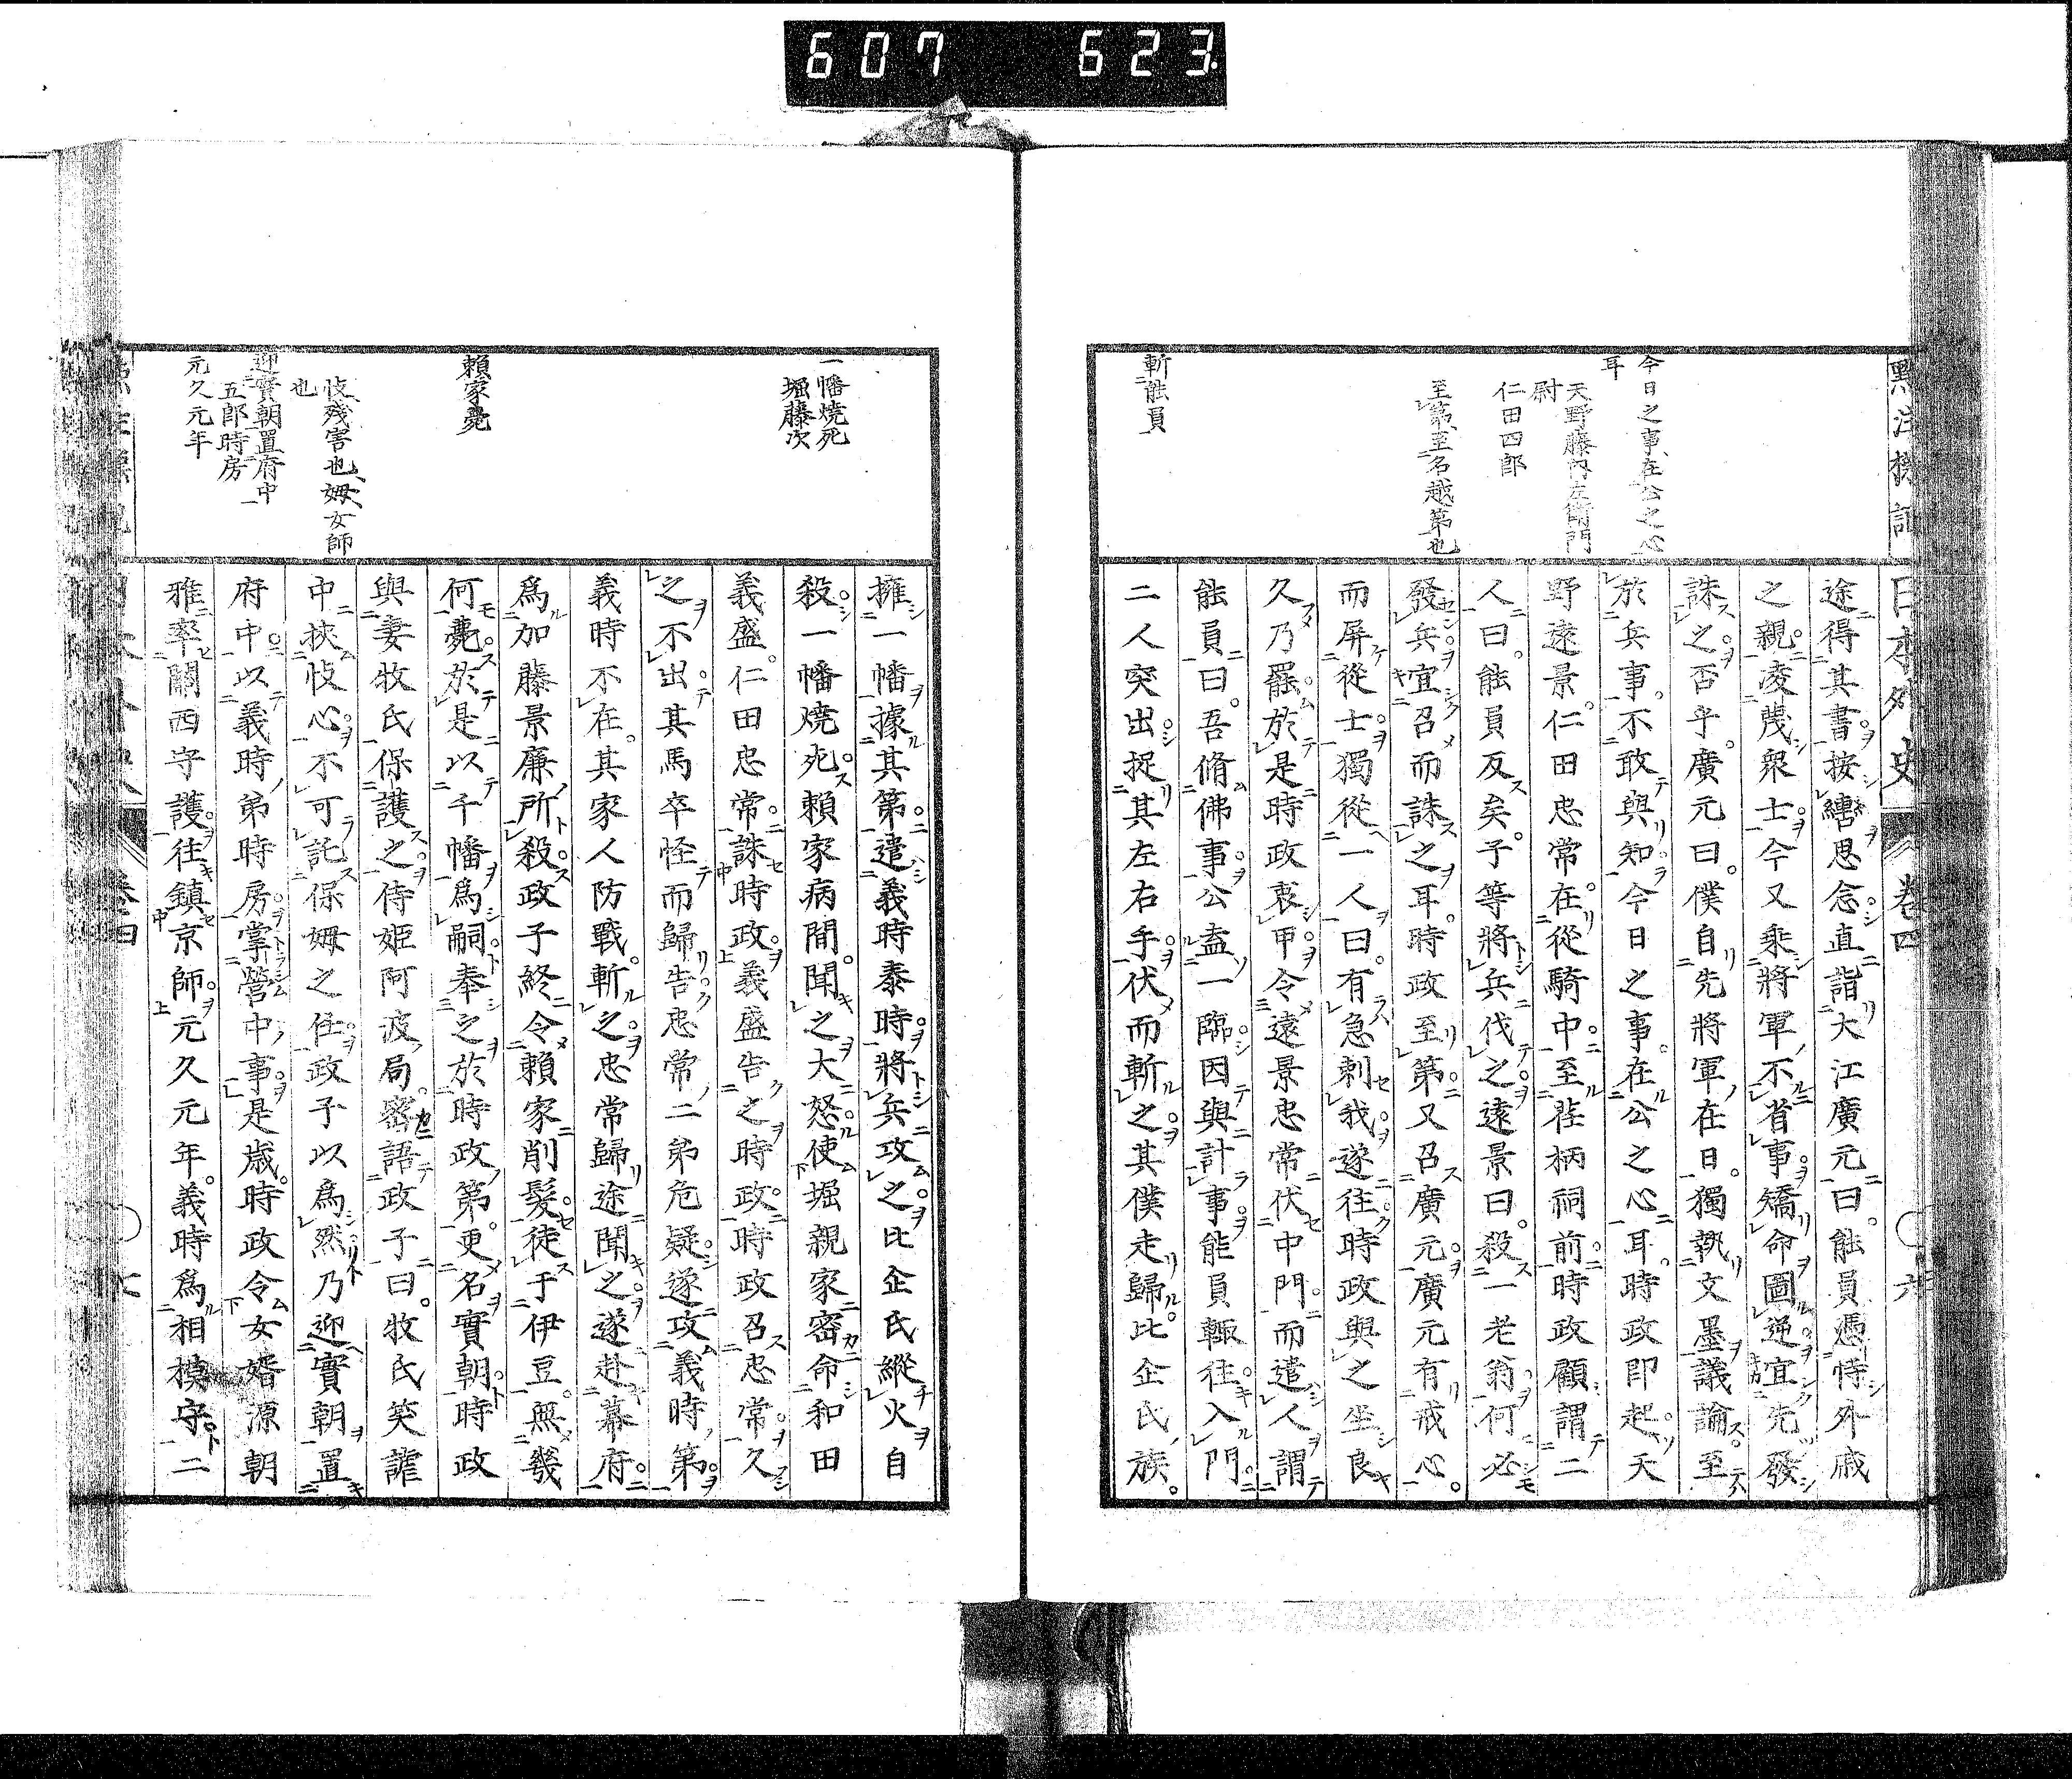 607 623
日本外史 卷四 六
今日之事、在公之心
耳
天野藤内左衛門
尉
仁田四郎
至第、至名越第也
斬能員
途得其書。按轡思念。直詣大江廣元曰。能員憑恃外戚
之親。凌蔑衆士。今又乘將軍不省事。矯命圖逆。宜先發
誅之。否乎。廣元曰。僕自先將軍在日。獨執文墨議論。至
於兵事。不敢與知。今日之事。在公之心耳。時政即起。天
野遠景。仁田忠常在從騎中。至荏柄祠前。時政顧謂二
人曰。能員反矣。子等將兵伐之。遠景曰。殺一老翁。何必
發兵。宜召而誅之耳。時政至第。又召廣元。廣元有戒心。
而屏從士。獨從一人曰。有急刺我。遂往。時政與之坐良
久乃罷。於是時政衷甲。令遠景忠常伏中門。而遣人謂
能員曰。吾脩佛事。公盍一臨。因與計事。能員輙往入門。
二人突出。捉其左右手。伏而斬之。其僕走歸。比企氏族。
一幡燒死
堀藤次
賴家薨
忮、殘害也、姆、女師
也
迎實朝置府中
五郎時房
元久元年
擁一幡據其第。遣義時泰時。將兵攻之。比企氏縱火自
殺。一幡燒死。賴家病間。聞之大怒。使堀親家密命和田
義盛。仁田忠常。誅時政。義盛告之時政。時政召忠常。久
之不出。其馬卒怪而歸告。忠常二弟危疑。遂攻義時第。
義時不在。其家人防戰。斬之。忠常歸途聞之。遂赴幕府。
爲加藤景廉所殺。政子終令賴家削髮。徒于伊豆。無幾
何薨。於是以千幡爲嗣。奉之於時政第。更名實朝。時政
與妻牧氏保護之。侍姫阿波局。密語政子曰。牧氏笑謔
中挾忮心。不可託保姆之任。政子以爲然。乃迎實朝置
府中。以義時弟時房掌營中事。是歳。時政令女婿源朝
雅率關西守護。往鎮京師。元久元年。義時爲相模守。二